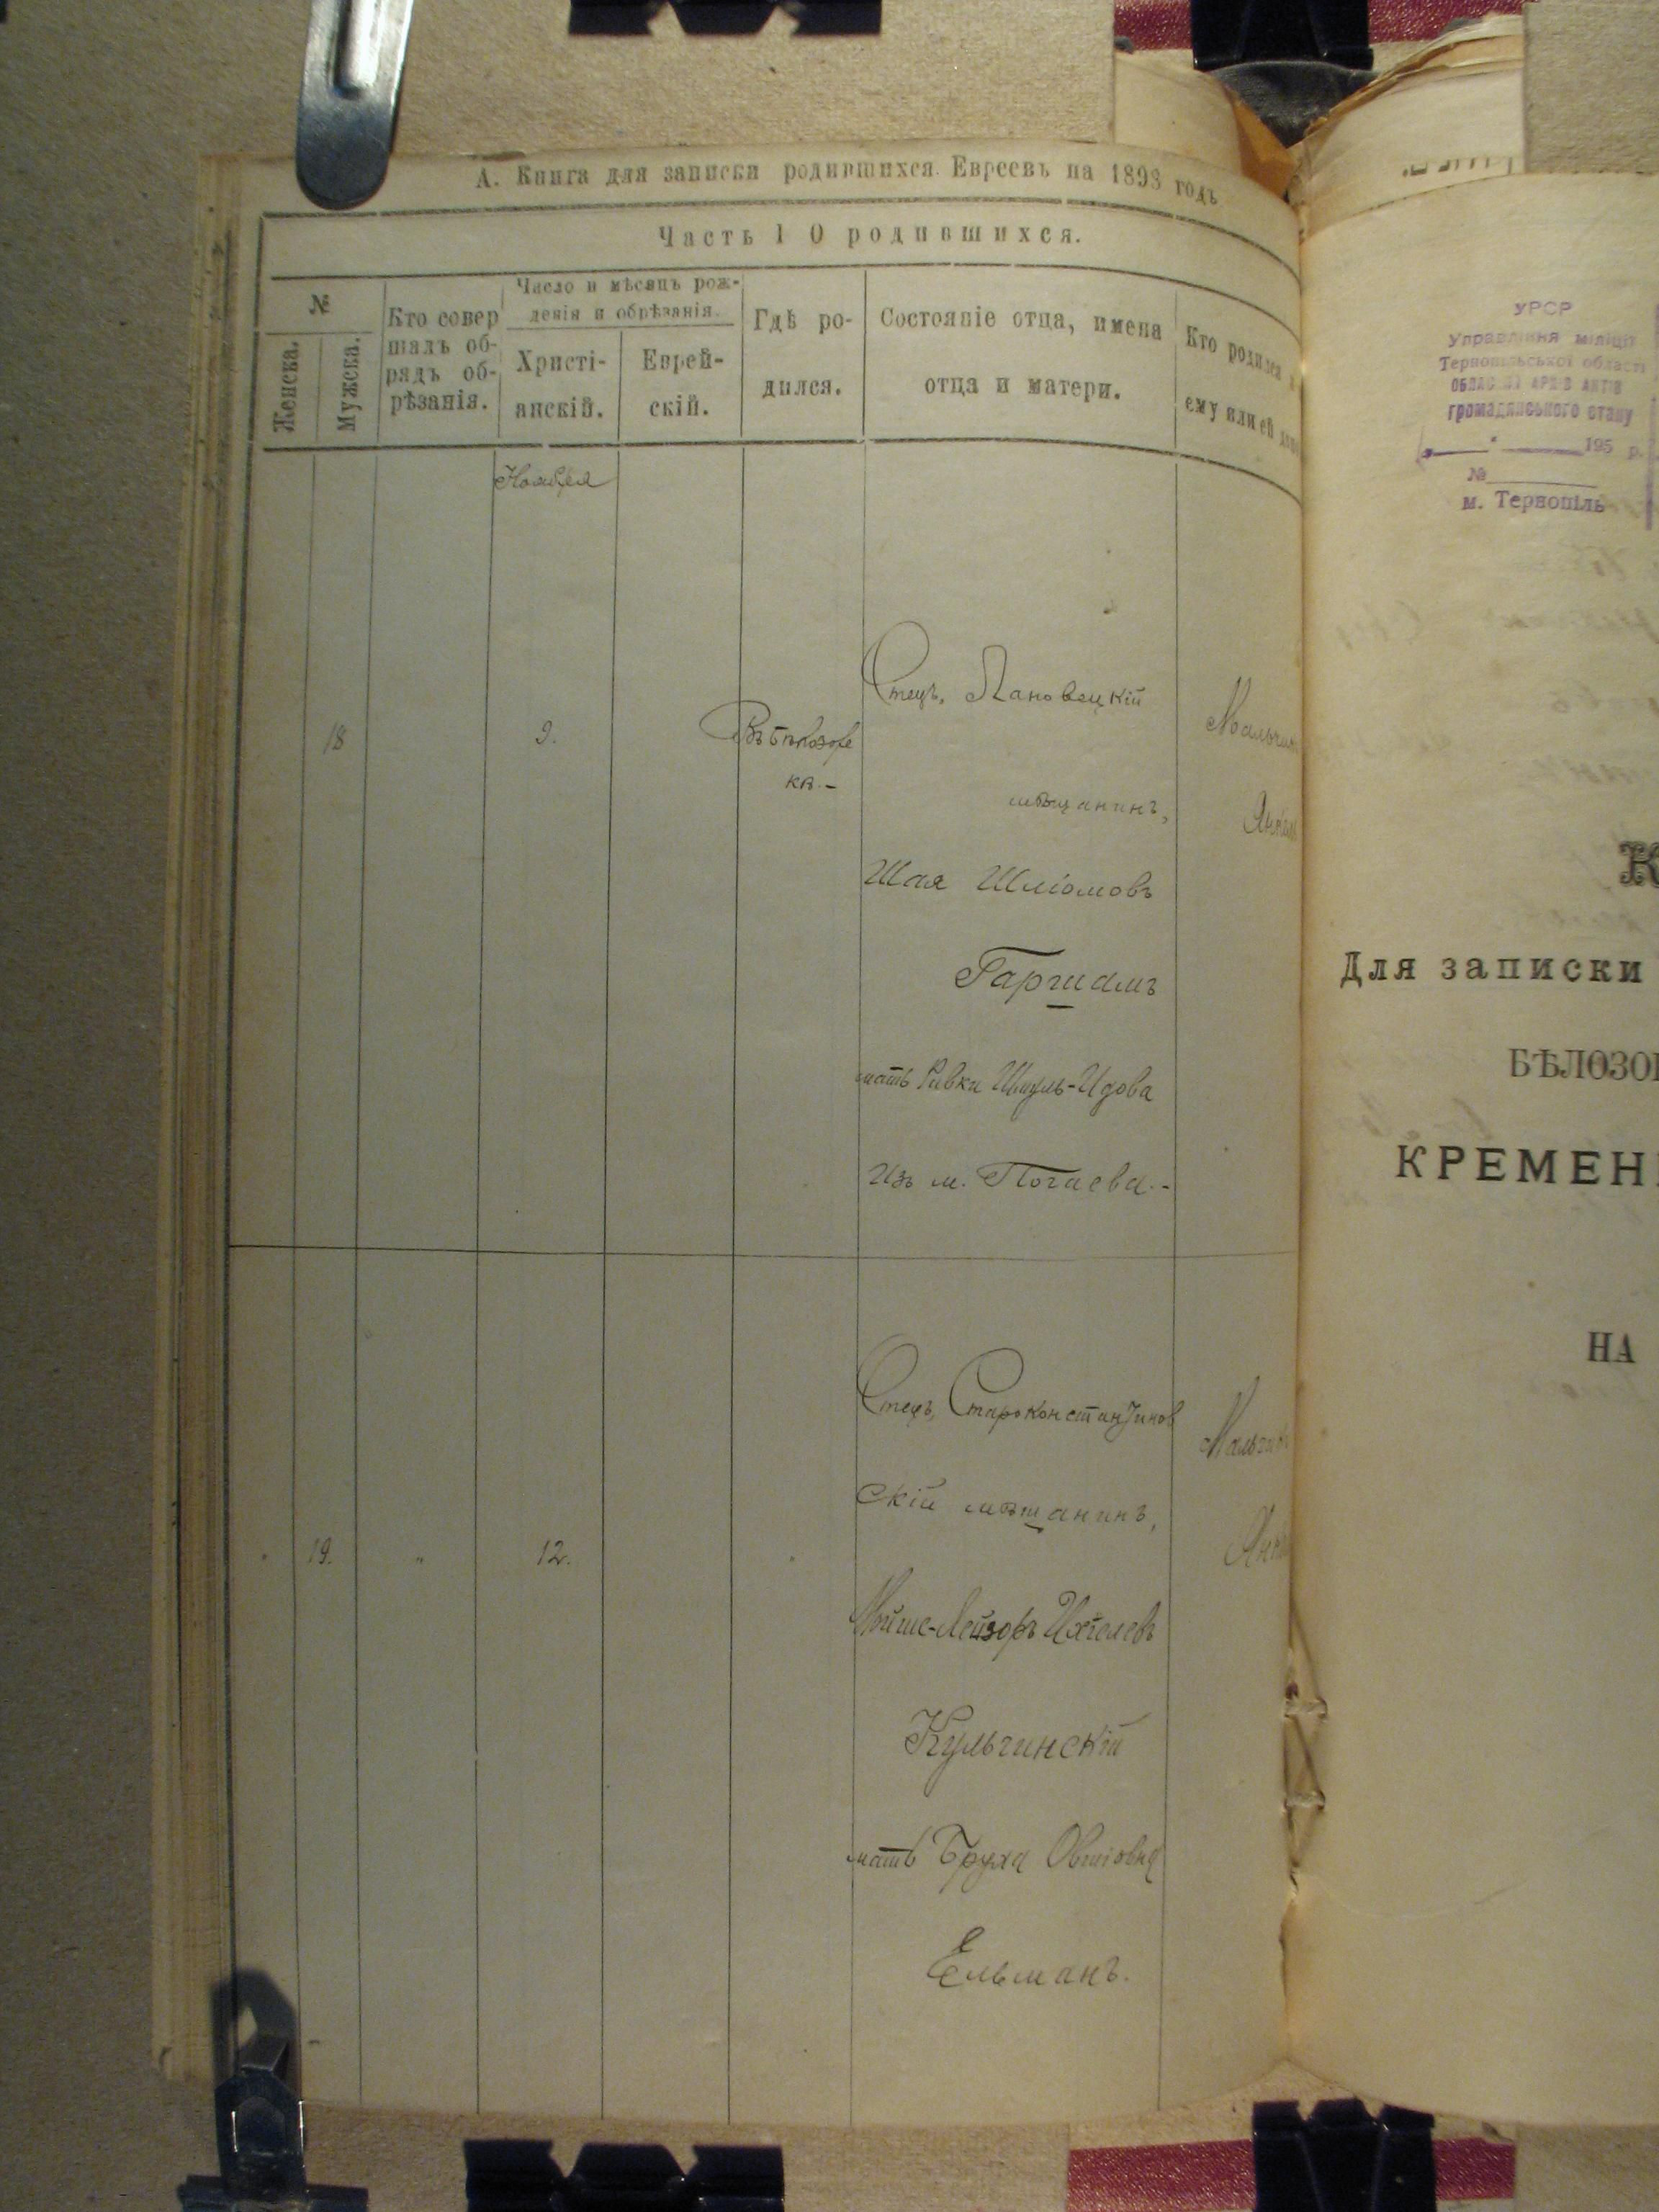 А. Книга для записки родившихся Евреевъ на 1893 годъ
Часть 1 О родившихся.
№
Женска.
Мужска.
Кто совер
шалъ об-
рядъ об-
рѣзанія.
Число и мѣсяцъ рож-
денія и обрѣзанія.
Христі-
анскій.
Еврей-
скій.
Гдѣ ро-
дился.
Состояніе отца, имена
отца и матери.
Кто родился
ему или ей
Ноября
18
9.
Въ Бѣлозор
кѣ.-
Отецъ, Лановецкій
мѣщанинъ,
Шая Шліомовъ
Гаршамъ
мать Ривка Шмуль-Идова
Изъ м. Почаева.-
Мальчи
19.
"
12.
Отецъ, Староконстантинов
скій мѣщанинъ,
Мойше-Лейзоръ Ихіелевъ
Кульчинскій
мать Бруха Овшіовна
Ельманъ.
Мальчи
УРСР
Управління міліції
Тернопільської області
ОБЛАСНИЙ АРХІВ АКТІВ
громадянського стану
195 р.
№
м. Тернопіль
К
Для записки
БѢЛОЗО
КРЕМЕН
НА